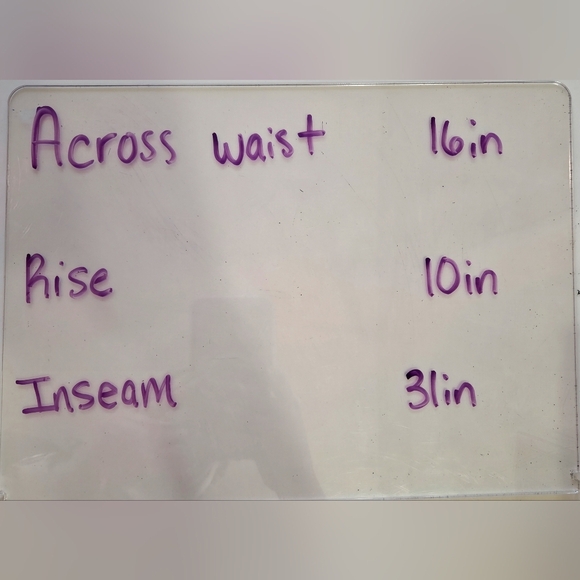 Across waist 16in
Rise 10in
Inseam 31in